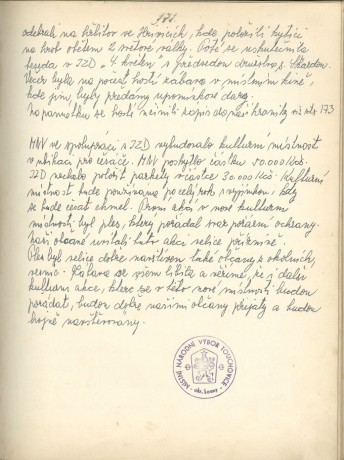 172.
odebrali na hřbitov ve Hřivicích, kde položili kytici
na hrob obětem 2 světové války. Poté se uskutečnila
beseda v JZD "4 květen" s předsedou družstva s.
Večer byla na počest hostí zábava v místním kině,
kde jim byly předány upomínkové dary.
Na památku se hosté učinili zápis do naší kroniky viz str 173
MNV ve spolupráci s JZD vybudovalo kulturní místnost
v pro česáče. MNV poskytlo částku 50.000 Kčs.
JZD nechalo položit parkety v částce 30.000 Kčs. Kulturní
místnost bude používána po celý rok, s vyjímkou, kdy
se bude česat chmel. První akcí v nové kulturní
místnosti byl ples, který pořádal svaz požární ochrany.
Naši občané uvítali tuto akci velice příznivě.
Ples byl velice dobře navštíven také občany z okolních
vesnic. Oslava se všem líbila a věříme, že i další
kulturní akce, které se v této nové místnosti budou
pořádat, budou dobře našimi občany přijaty a budou
hojně navštěvovány.
MÍSTNÍ NÁRODNÍ VÝBOR TOUCHOVICE
okr. Louny